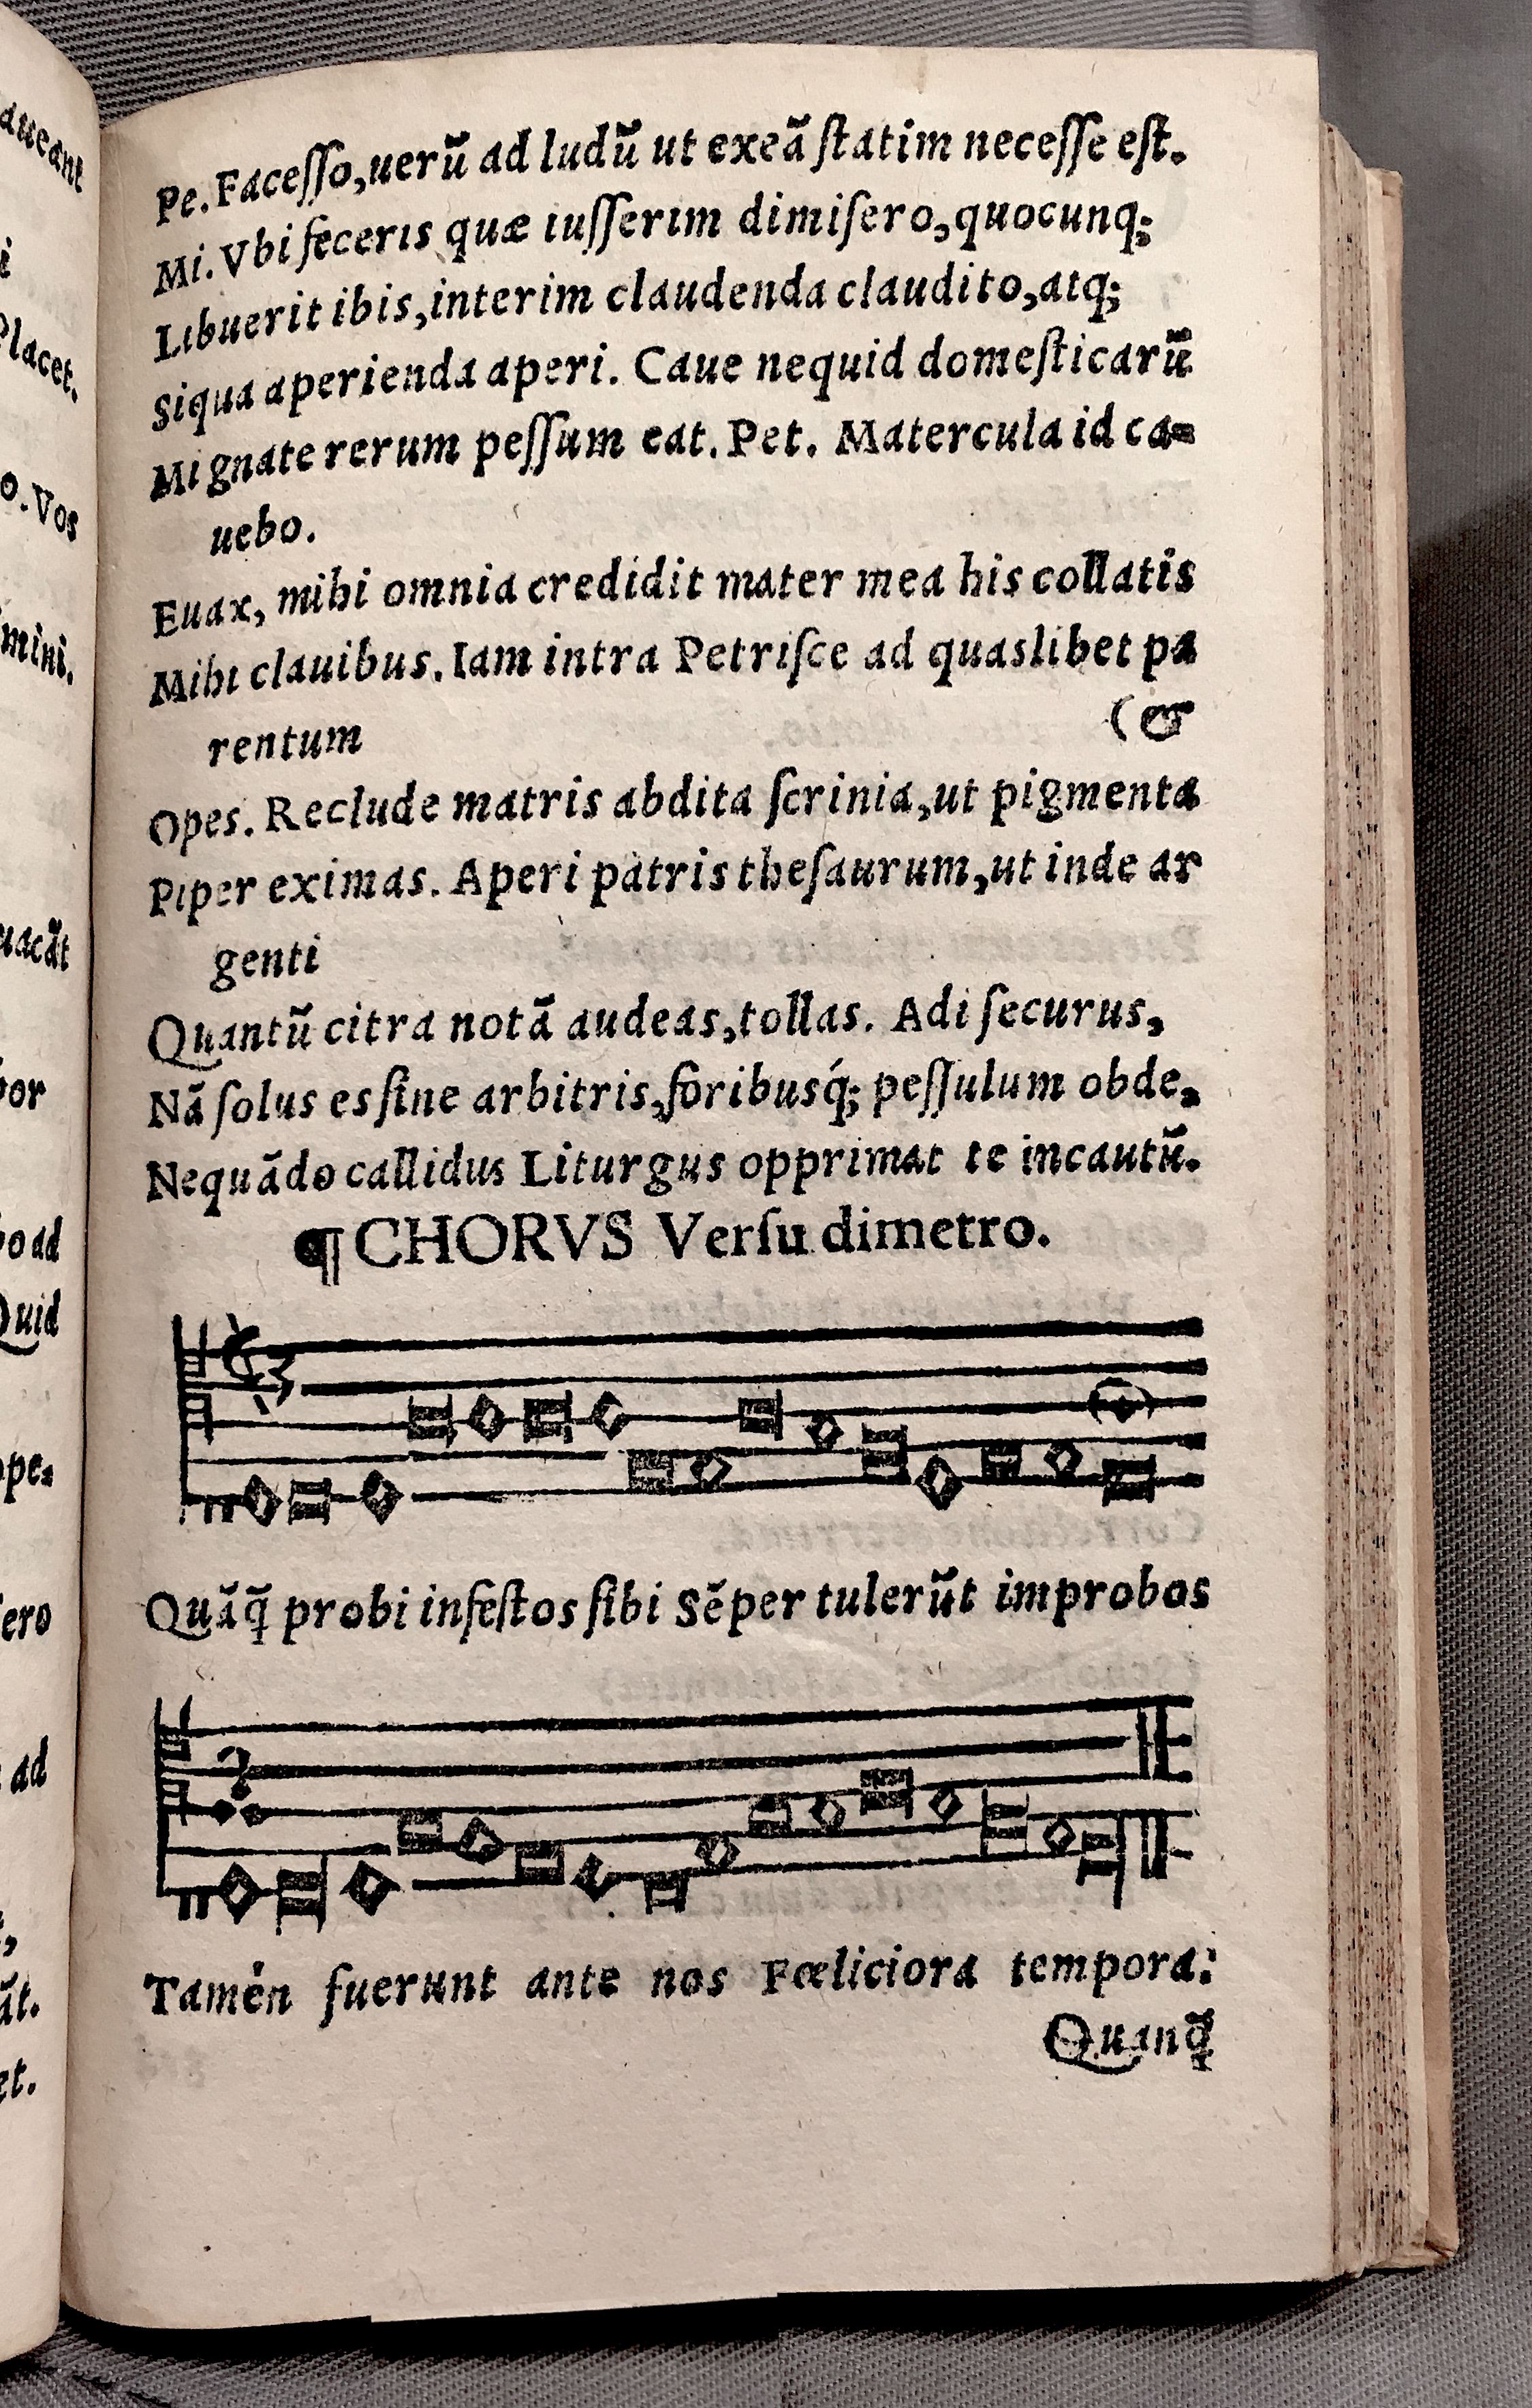 Pe. Faceſſo, uerũ ad ludũ ut exeã ſtatim neceſſe eſt.
Mi. Vbi feceris quæ iuſſerim dimiſero, quocunq;
Libuerit ibis, interim claudenda claudito, atq;
Siqua aperienda aperi. Caue nequid domeſticarũ
Mi gnate rerum peſſum eat. Pet. Matercula id ca=
uebo.
Euax, mihi omnia credidit mater mea his collatis
Mihi clauibus. Iam intra Petriſce ad quaslibet pa
rentum
Opes. Reclude matris abdita ſcrinia, ut pigmenta
Piper eximas. Aperi patris theſaurum, ut inde ar
genti
Quantũ citra notã audeas, tollas. Adi ſecurus,
Nã ſolus es ſine arbitris, foribusq́; peſſulum obde,
Nequãdo callidus Liturgus opprimat te incautũ.
¶ CHORVS Verſu dimetro.
Quãq̃ probi infeſtos ſibi Sẽper tulerũt improbos
Tamen fuerunt ante nos Fœliciora tempora:
Quanq̃
aueant
i
Placet.
o. Vos
mini.
uacãt
por
o ad
Quid
ope=
ero
ad
ãt.
et.